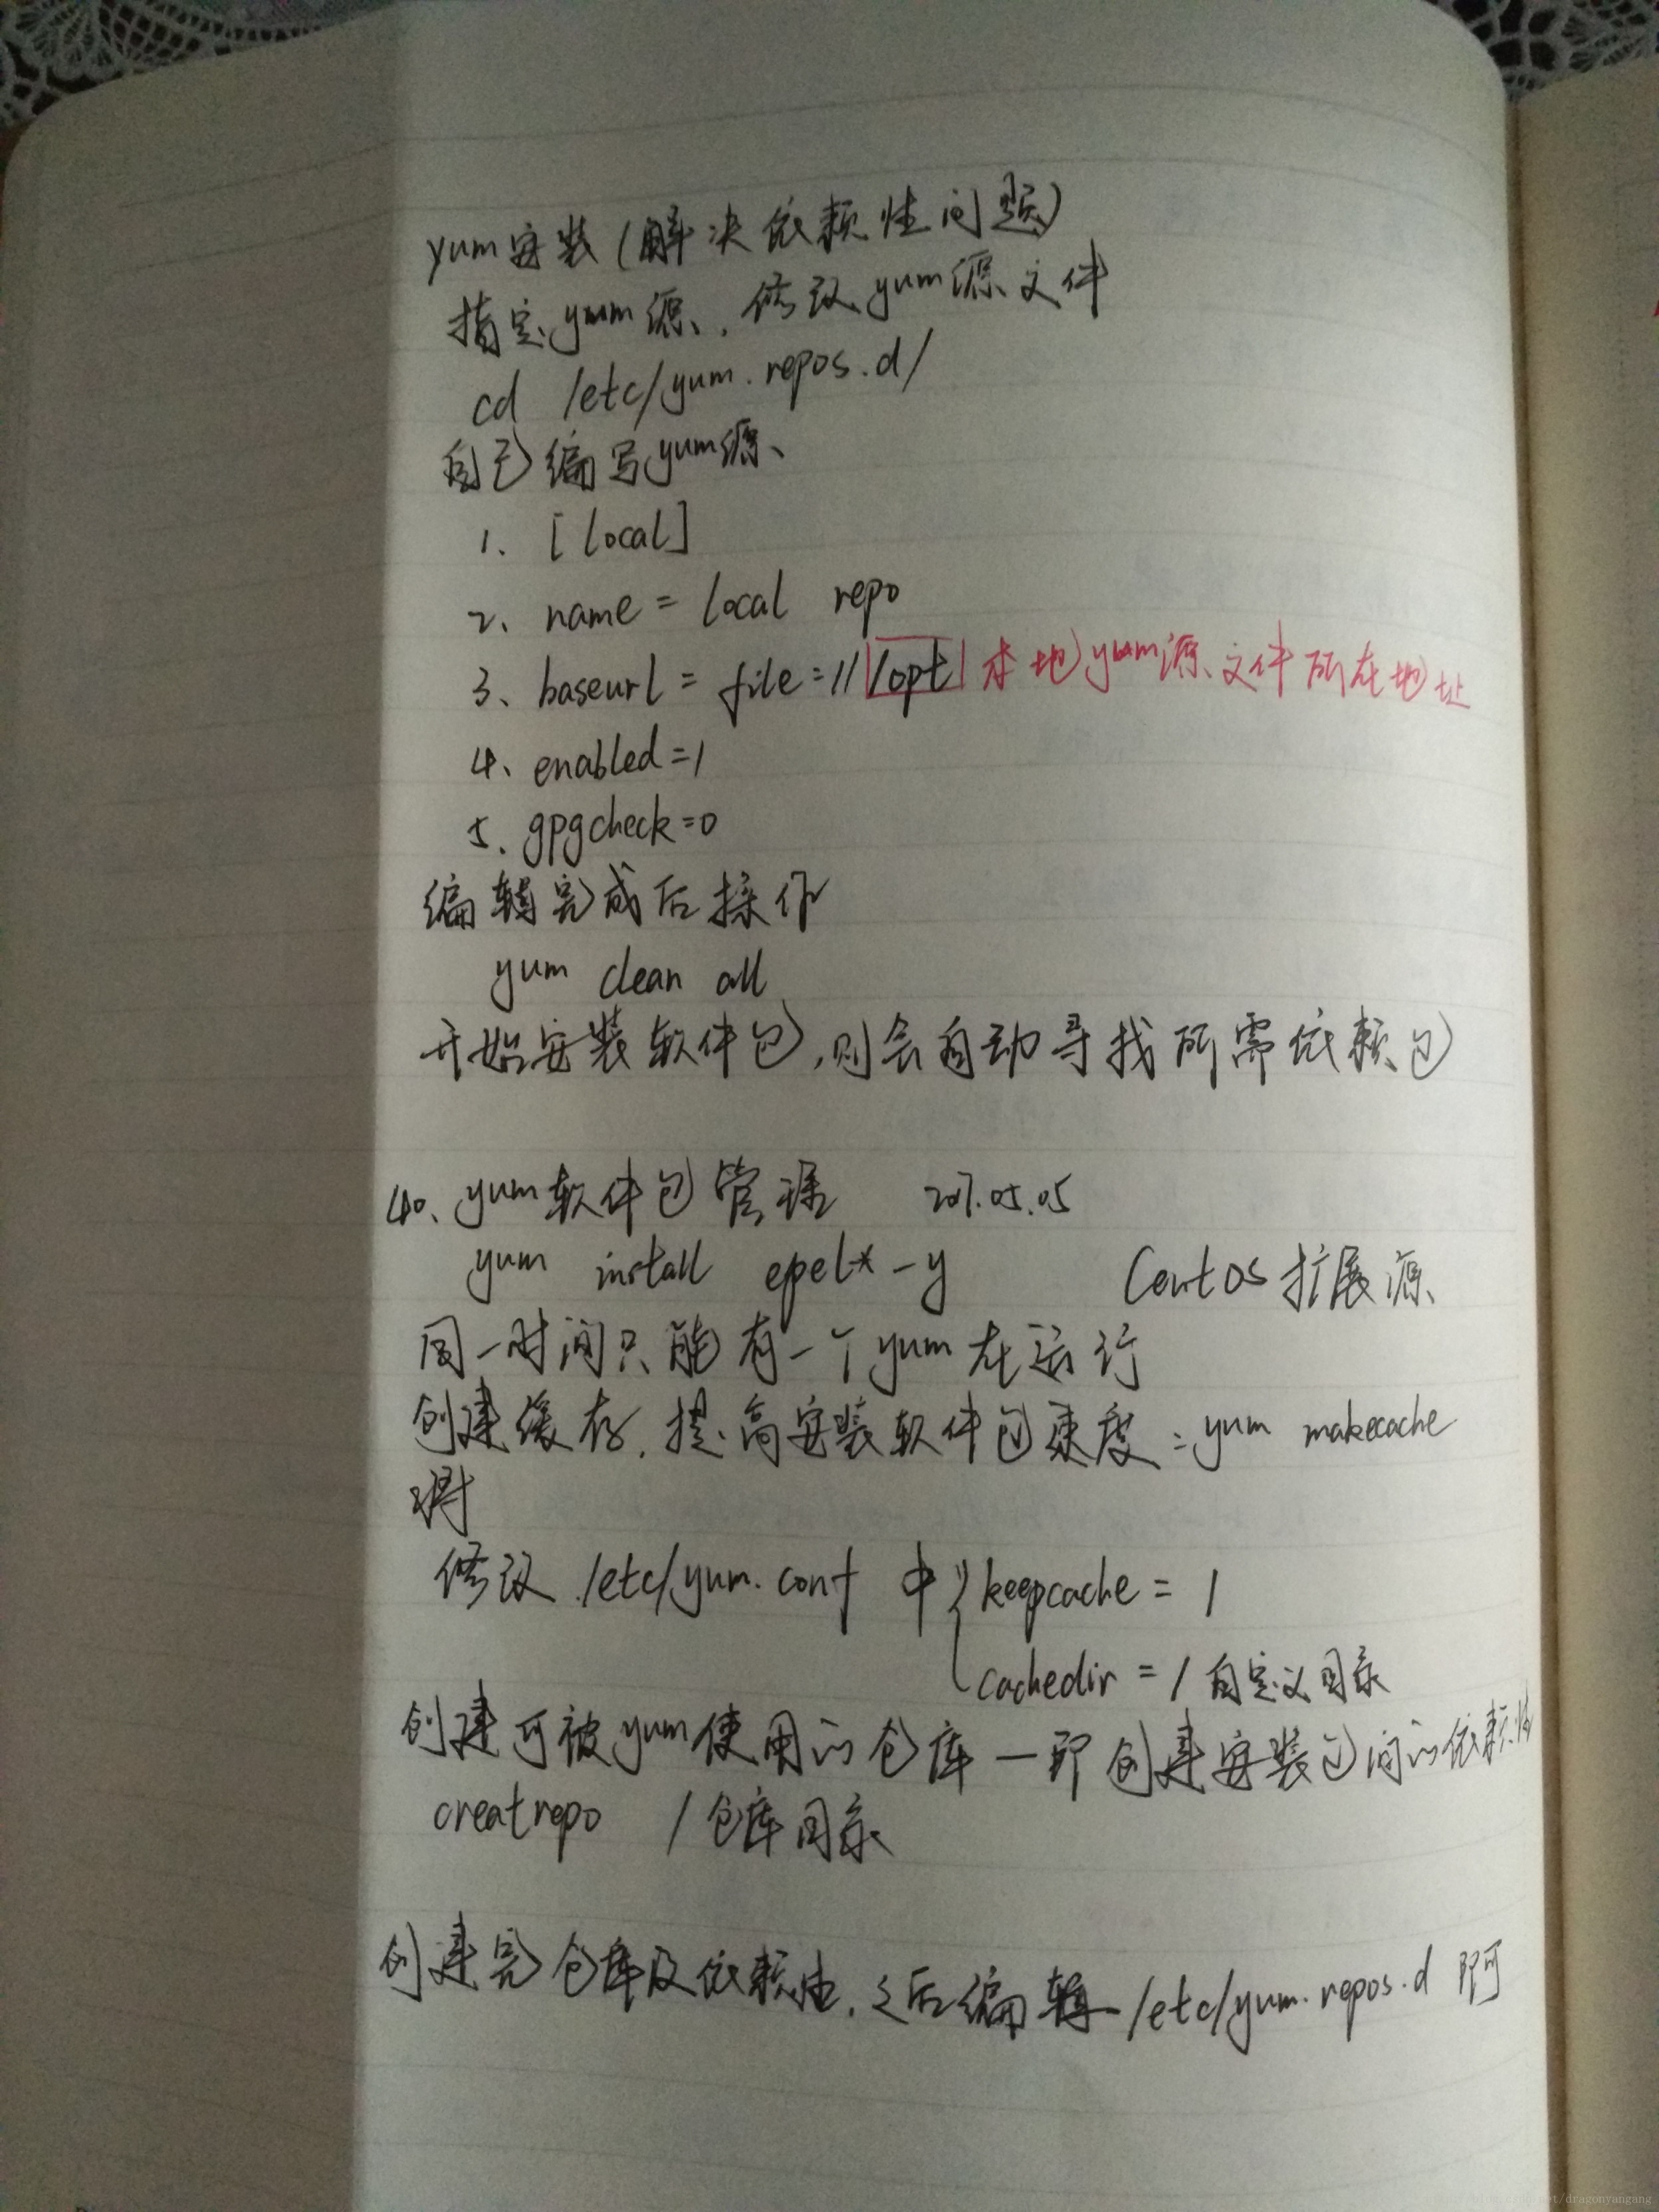 yum安装(解决依赖性问题)
指定yum源、修改yum源文件
cd /etc/yum.repos.d/
自己编写yum源、
1、[local]
2、name = local repo
3、baseurl = file:///opt 本地yum源文件所在地址
4、enabled=1
5、gpgcheck=0
编辑完成后操作
yum clean all
开始安装软件包,则会自动寻找所需依赖包
40、yum软件包管理 2017.05.05
yum install epel* -y CentOS扩展源
同一时间只能有一个yum在运行
创建缓存,提高安装软件包速度:yum makecache
修改 /etc/yum.conf 中 { keepcache = 1
cachedir = /自定义目录
创建可被yum使用的仓库—即创建安装包间的依赖性
creatrepo /仓库目录
创建完仓库及依赖性,之后编辑 /etc/yum.repos.d 即可